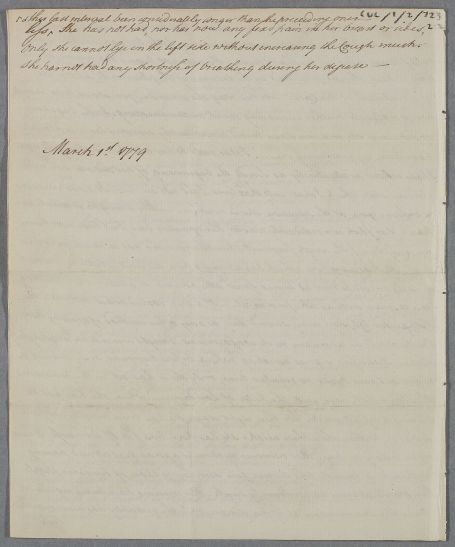 last interval been considerably longer than the preceding ones CUL/1/2/123
less, She has not had, nor has now any fix'd pain in her breast or sides, 22
only she cannot lye on the left side without increasing the Cough much.
She has not had any shortness of breathing during her disease —
March 1st 1779